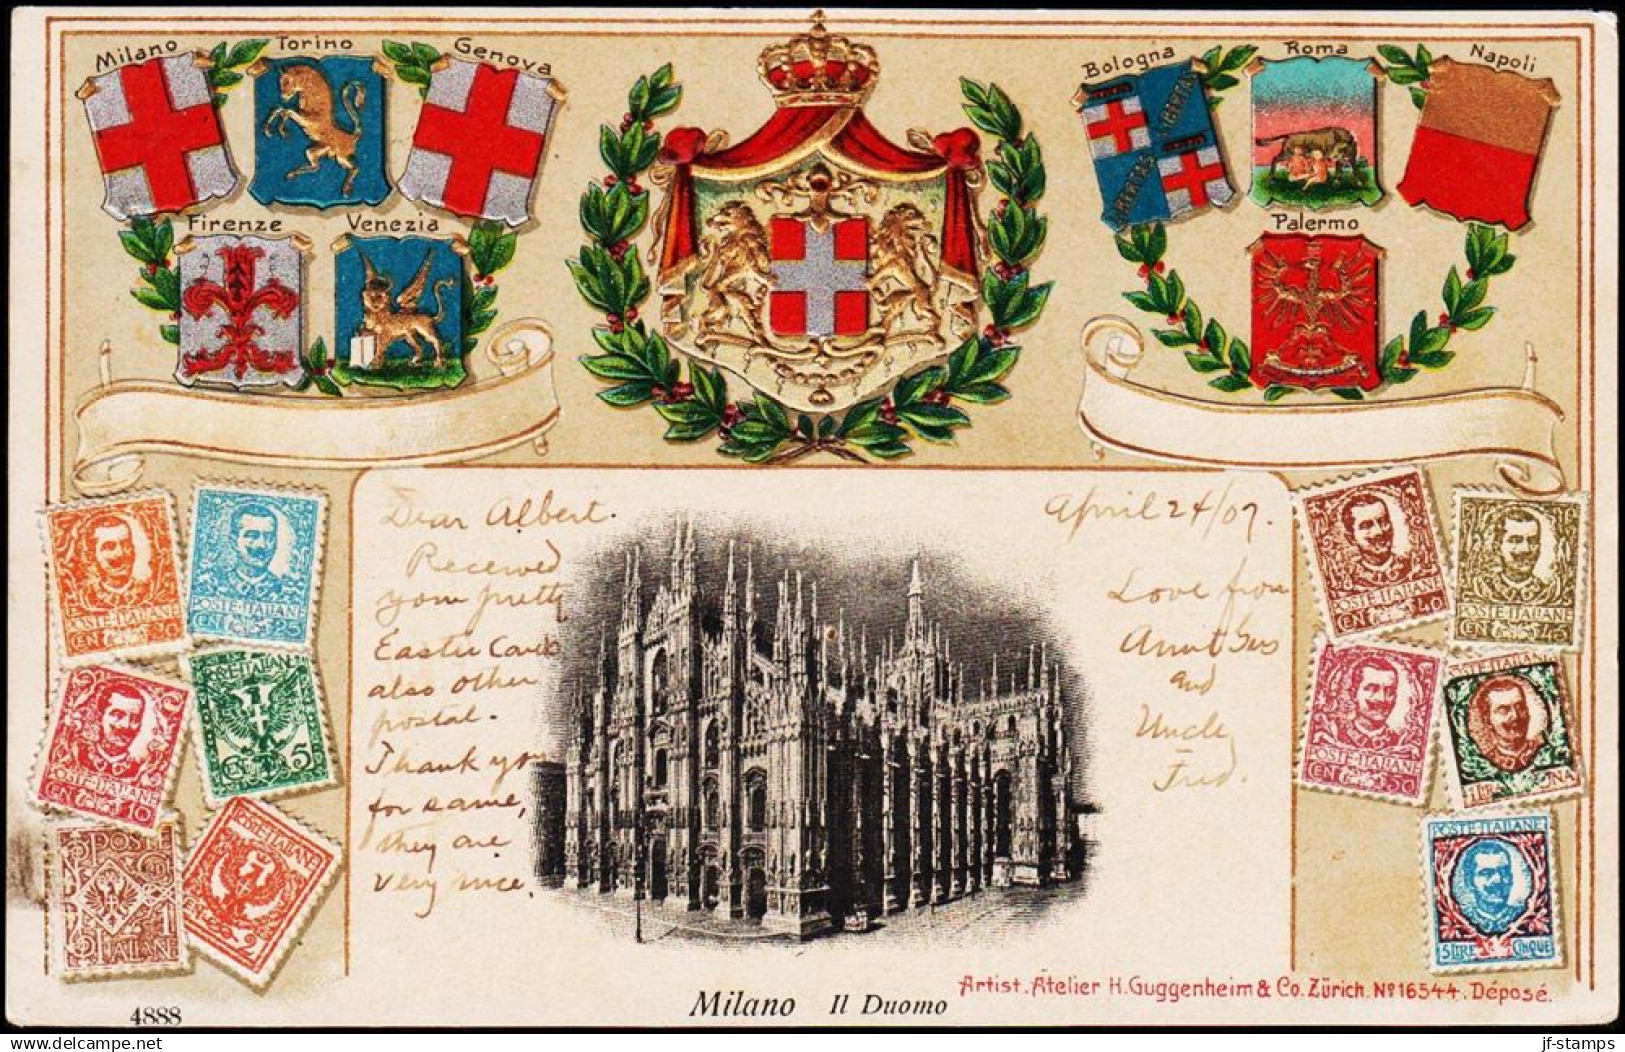 Milano
Torino
Genova
Bologna
Roma
Napoli
LIBERTAS
LIBERTAS
LIBERTAS
Firenze
Venezia
Palermo
Dear Albert.
Received
your pretty
Easter Card
also other
postal.
Thank you
for same,
they are
very nice.
April 24/07.
Love from
Aunt Gus
and
Uncle
Fred.
POSTE·ITALIANE
CEN 20
POSTE·ITALIANE
CEN 25
POSTE·ITALIANE
CEN 10
POSTE·ITALIANE
CEN 5
POSTE
1
ITALIANE
POSTE·ITALIANE
CEN 2
POSTE·ITALIANE
CEN 40
POSTE·ITALIANE
CEN 45
POSTE·ITALIANE
CEN 50
POSTE·ITALIANE
1 LIRA UNA
POSTE·ITALIANE
5 LIRE CINQUE
Artist. Atelier H. Guggenheim & Co. Zürich. No 16544. Déposé.
Milano Il Duomo
4888
jf-stamps